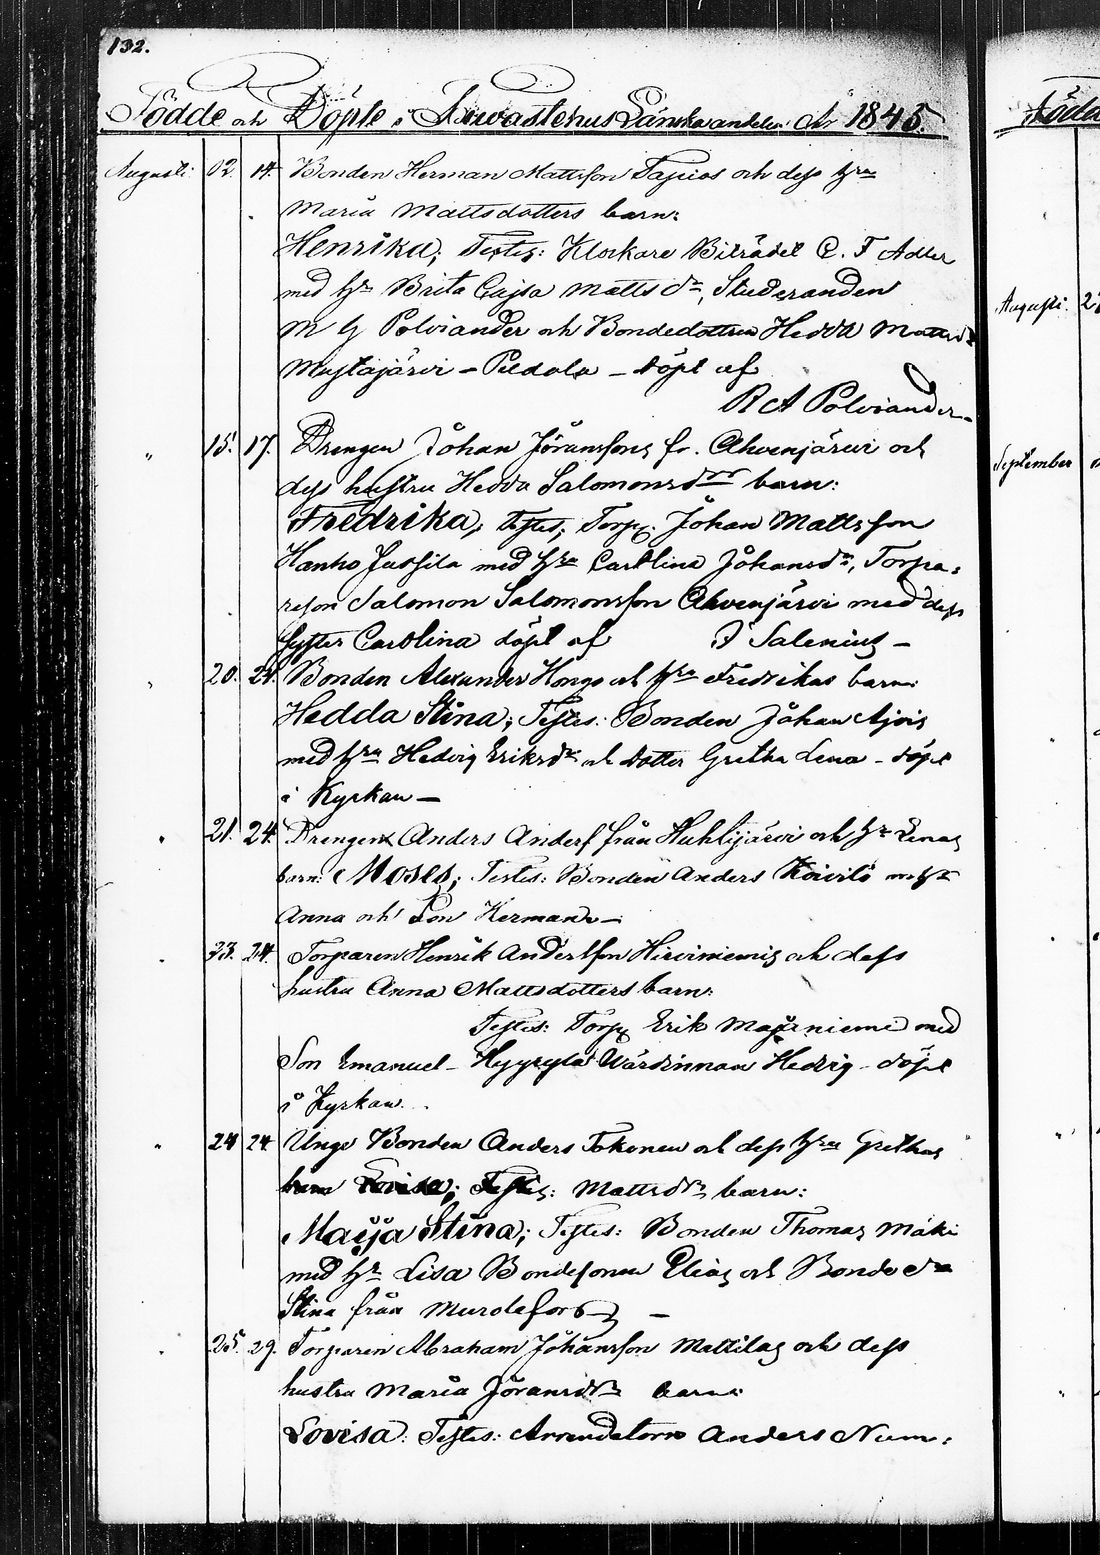 132.
Födde och Döpte i Tawastehus Länska andelen År 1845.
Augusti 02. 14. Bonden Herman Mattsson Tapios och dess hru
Maria Mattsdotters barn:
Henrika; Testes: Klockare Biträdet C. F Adler
med hr Brita Cajsa Mattsdr, Studeranden
M G Polviander och Bondedottren Hedda Mattsdr
Mustajärvi - Puddola - döpt af
R A Polviander
" 15. 17. Drengen Johan Jöransson fr. Ahvenjärvi och
dess hustru Hedda Salomonsdrrs barn:
Fredrika; Testes; Torp. Johan Mattsson
Hanho Jussila med hru Carolina Johansdr, Torpa=
reson Salomon Salomonsson Ahvenjärvi med dess
syster Carolina döpt af J Salenius -
" 20. 24. Bonden Alexander Hongo och hru Fredrikas barn:
Hedda Stina; Testes: Bonden Johan Ajois
med hru Hedvig Eriksdr och dotter Gretha Lena - döpt
i Kyrkan -
" 21. 24. Drengen Anders Anderss från Huhlijärvi och hr Lenas
barn: Moses; Testes: Bonden Anders Koivisto m hr
Anna och Son Herman -
" 23. 24. Torparen Henrik Andersson Hirviniemis och dess
hustru Anna Mattsdotters barn:
Testes: Torp Erik Majaniemi med
Son Emanuel - Hyyrylä Wärdinnan Hedvig - döpt
i Kyrkan.
" 24 24. Unge Bonden Anders Tokonen och dess hru Grethas
Mattsdrs barn:
Maija Stina; Testes: Bonden Thomas Mäki
med hr Lisa Bondesonen Elias och Bonde dr
Stina från Murolefors -
" 25. 29. Torparen Abraham Johansson Mattilas och dess
hustru Maria Jöransdrs barn:
Lovisa: Testes: Arrendatorn Anders Num=
Födde
Augusti. 2
September